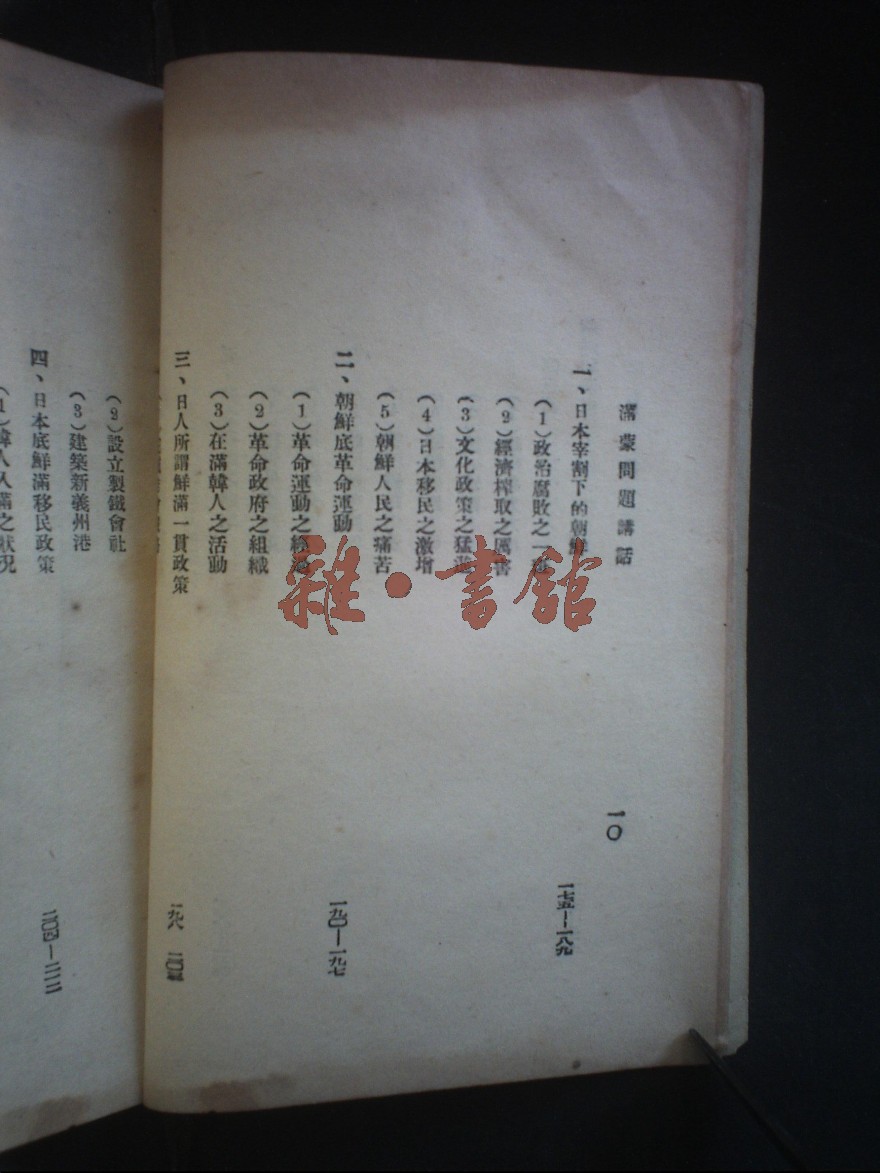 滿蒙問題講話
一〇
一、日本宰割下的朝鮮
一七五—一八九
(1)政治腐敗之一
(2)經濟榨取之厲害
(3)文化政策之猛進
(4)日本移民之激增
(5)朝鮮人民之痛苦
二、朝鮮底革命運動
一九〇—一九七
(1)革命運動之
(2)革命政府之組織
(3)在滿韓人之活動
三、日人所謂鮮滿一貫政策
一九八
(2)設立製鐵會社
(3)建築新義州港
四、日本底鮮滿移民政策
(1)韓人入滿之狀況
雜·書館